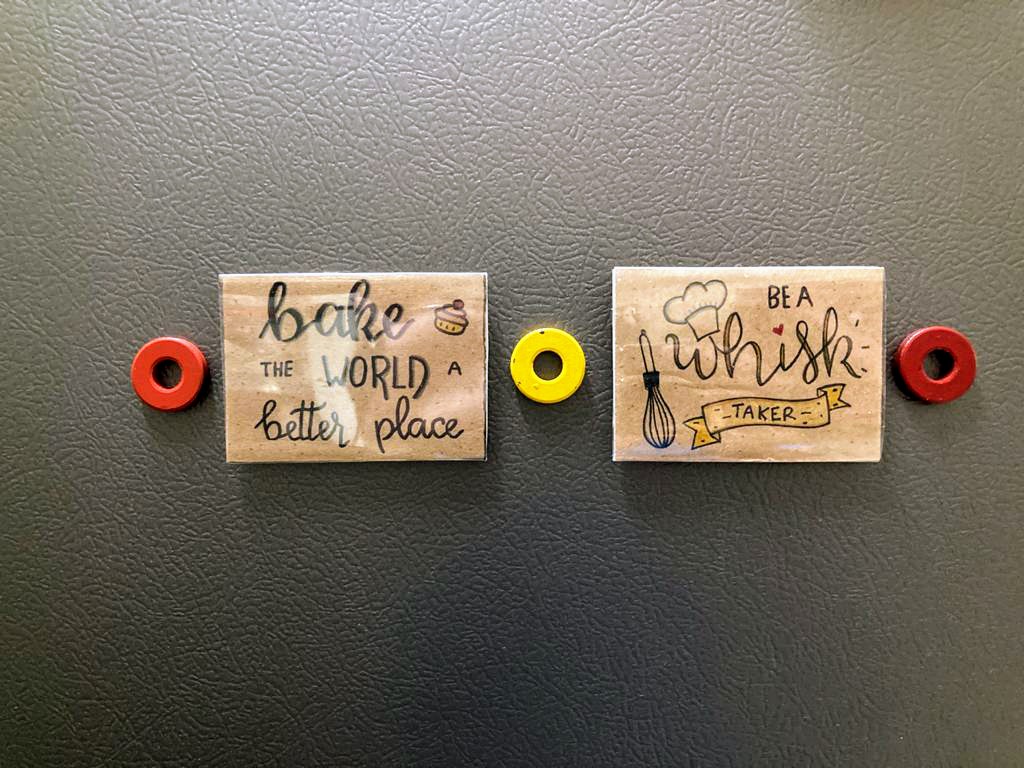 bake
THE WORLD A
better place
BE A
whisk
-TAKER-